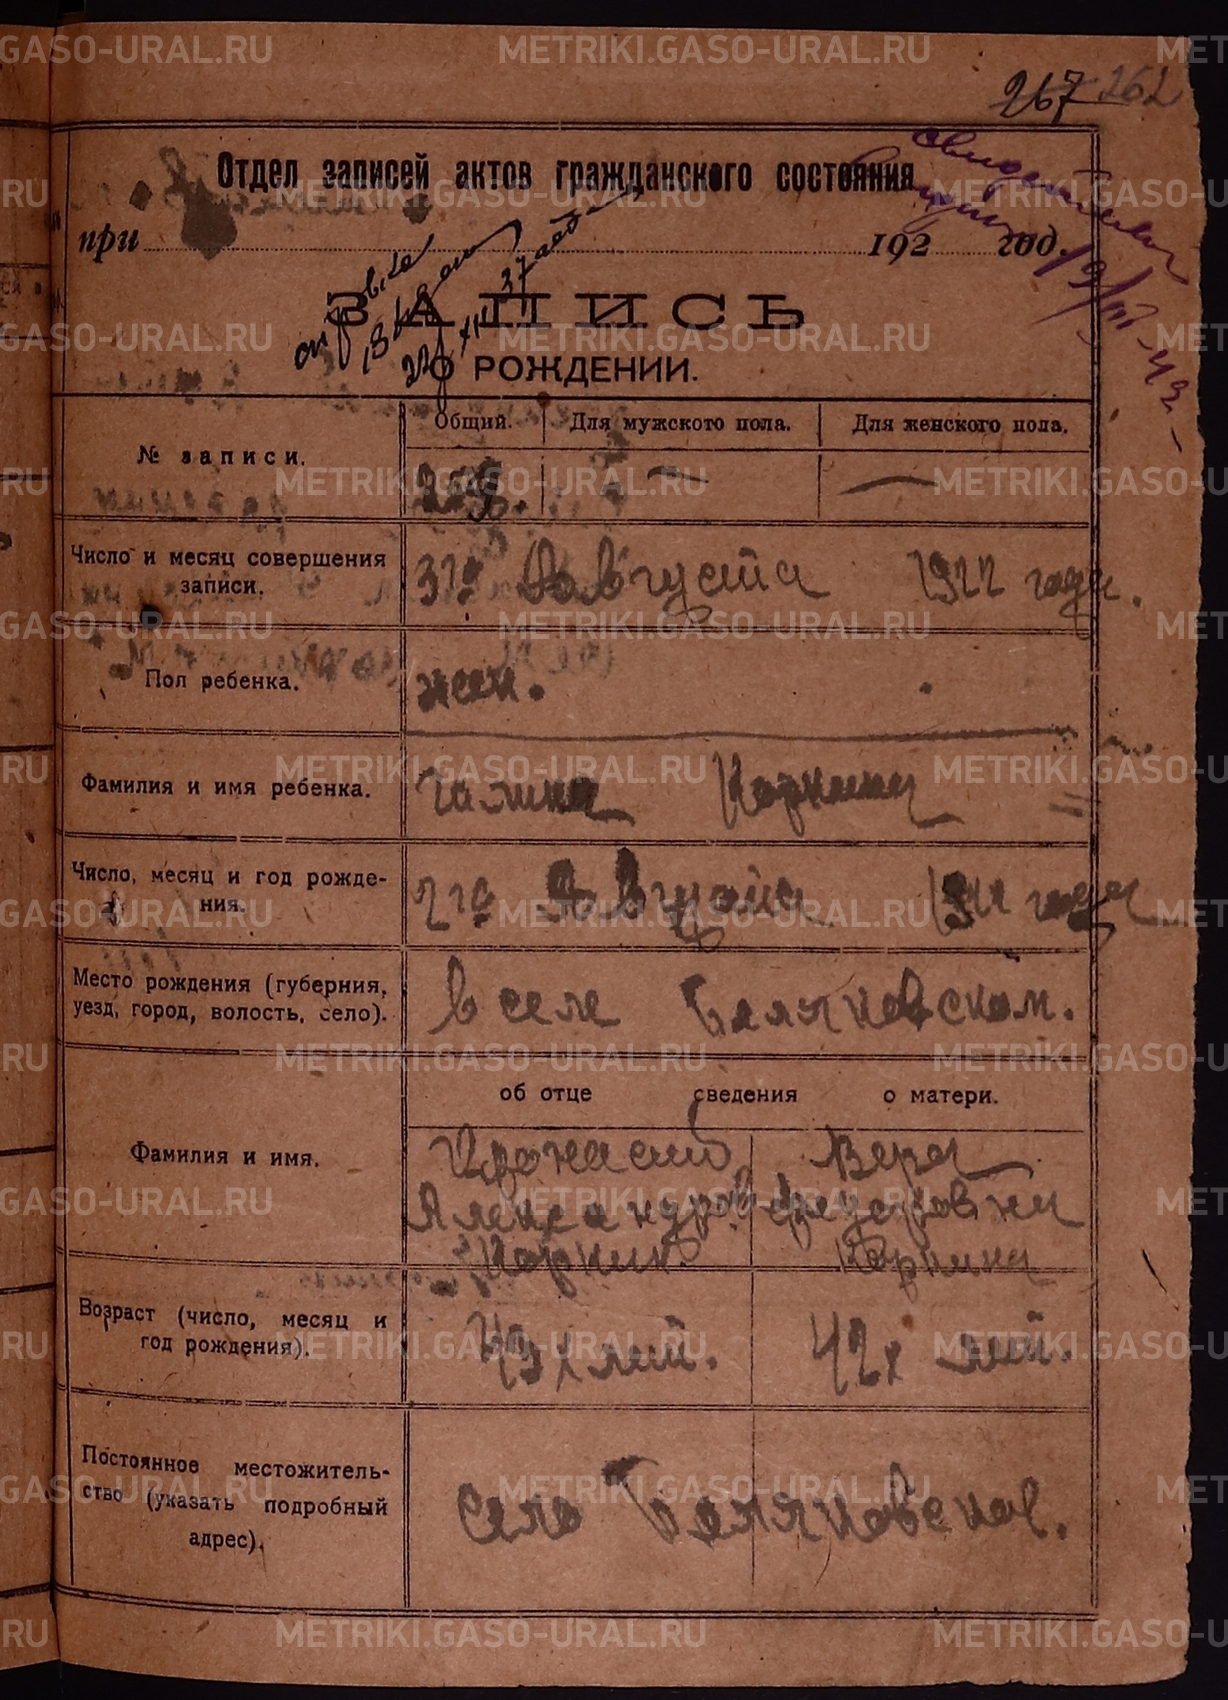 267 262
Отдел записей актов гражданского состояния
при 192 год.
ЗАПИСЬ
О РОЖДЕНИИ.
№ записи.
Общий. Для мужского пола. Для женского пола.
Число и месяц совершения
записи.
31го Августа 1922 года.
Пол ребенка.
жен.
Фамилия и имя ребенка.
Галина Коркина
Число, месяц и год рожде-
ния.
2го Августа 1922 года
Место рождения (губерния,
уезд, город, волость, село).
в селе Беляковском.
об отце сведения о матери.
Фамилия и имя.
Вера
Александров. Федоровна
Коркин. Коркина
Возраст (число, месяц и
год рождения).
43х лет. 42х лет.
Постоянное местожитель-
ство (указать подробный
адрес).
село Беляковское.
METRIKI.GASO-URAL.RU